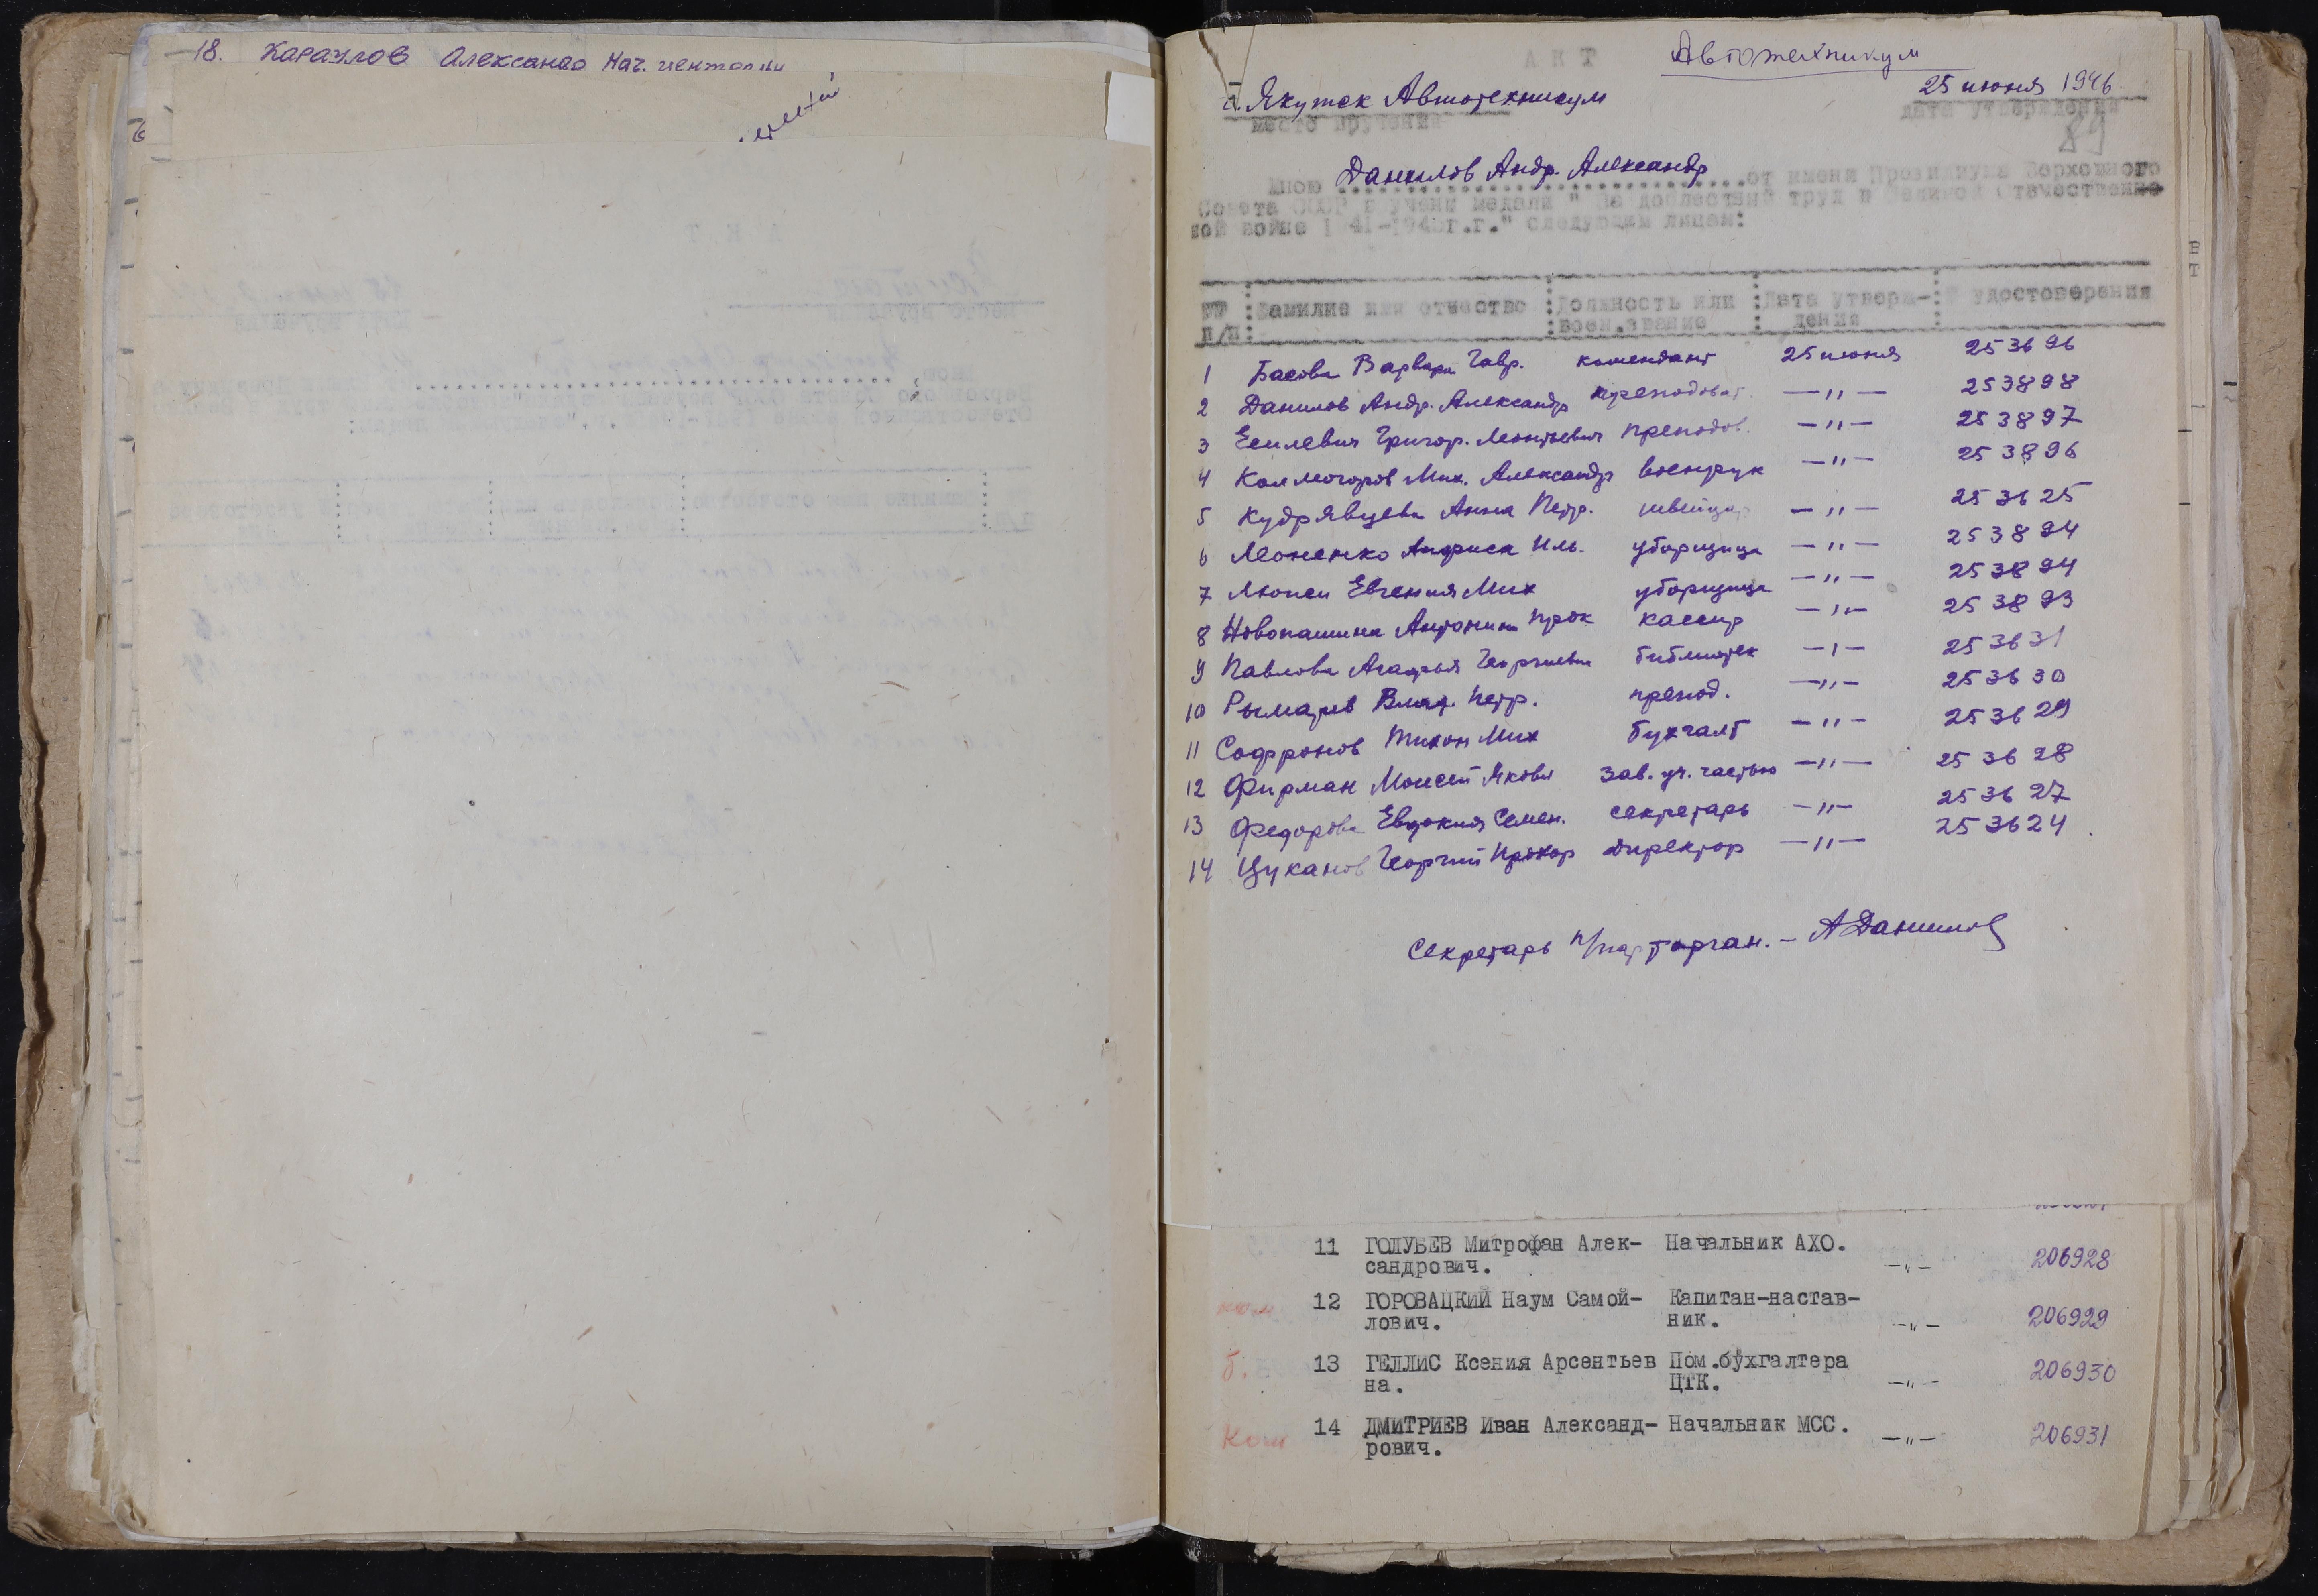 18. Караулов Александ Нач. конторы
АКТ
Автотехникум
г. Якутск Автотехникум
25 июня 1946
место вручения
дата утверждения
89
Данилов Андр. Александр
Мною ..............................от имени Президиума Верховного
Совета СССР вручени медали " За доблестный труд в Великой Отечествен
ной войне 1941-1945г.г." следующим лицам:
№№ Фамилие имя отчество Должность или Дата утверж- № удостоверения
п/п: воен.звание дения
1 Басова Варвара Гавр. комендант 25 июня 253696
2 Данилов Андр. Александр преподоват. —"— 253898
3 Григор. Леонтьевич преподов. —"— 253897
4 Колмогоров Мих. Александр военрук —"— 253896
5 Кудрявцева Анна Петр. швейцар —"— 253625
6 Леоненко Иль. уборщица —"— 253894
7 Евгения Мих уборщица —"— 253894
8 Новопашина Антонина Прок кассир —"— 253893
9 Павлова Агафья Георгиевна библиотек —"— 253631
10 Влад. Петр. препод. —"— 253630
11 Софронов Тихон Мих бухгалт —"— 253629
12 Фирман Моисей Яковл Зав. уч. частью —"— 253628
13 Федорова Евдокия Семен. секретарь —"— 253627
14 Цуканов Георгий Прокор директор —"— 253624
Секретарь п/парторган. – АДанилов
11 ГОЛУБЕВ Митрофан Алек- Начальник АХО.
сандрович. —"— 206928
12 ГОРОВАЦКИЙ Наум Самой- Капитан-настав-
лович. ник. —"— 206929
13 ГЕЛЛИС Ксения Арсентьев Пом.бухгалтера
на. ЦТК. —"— 206930
14 ДМИТРИЕВ Иван Александ- Начальник МСС.
рович. —"— 206931